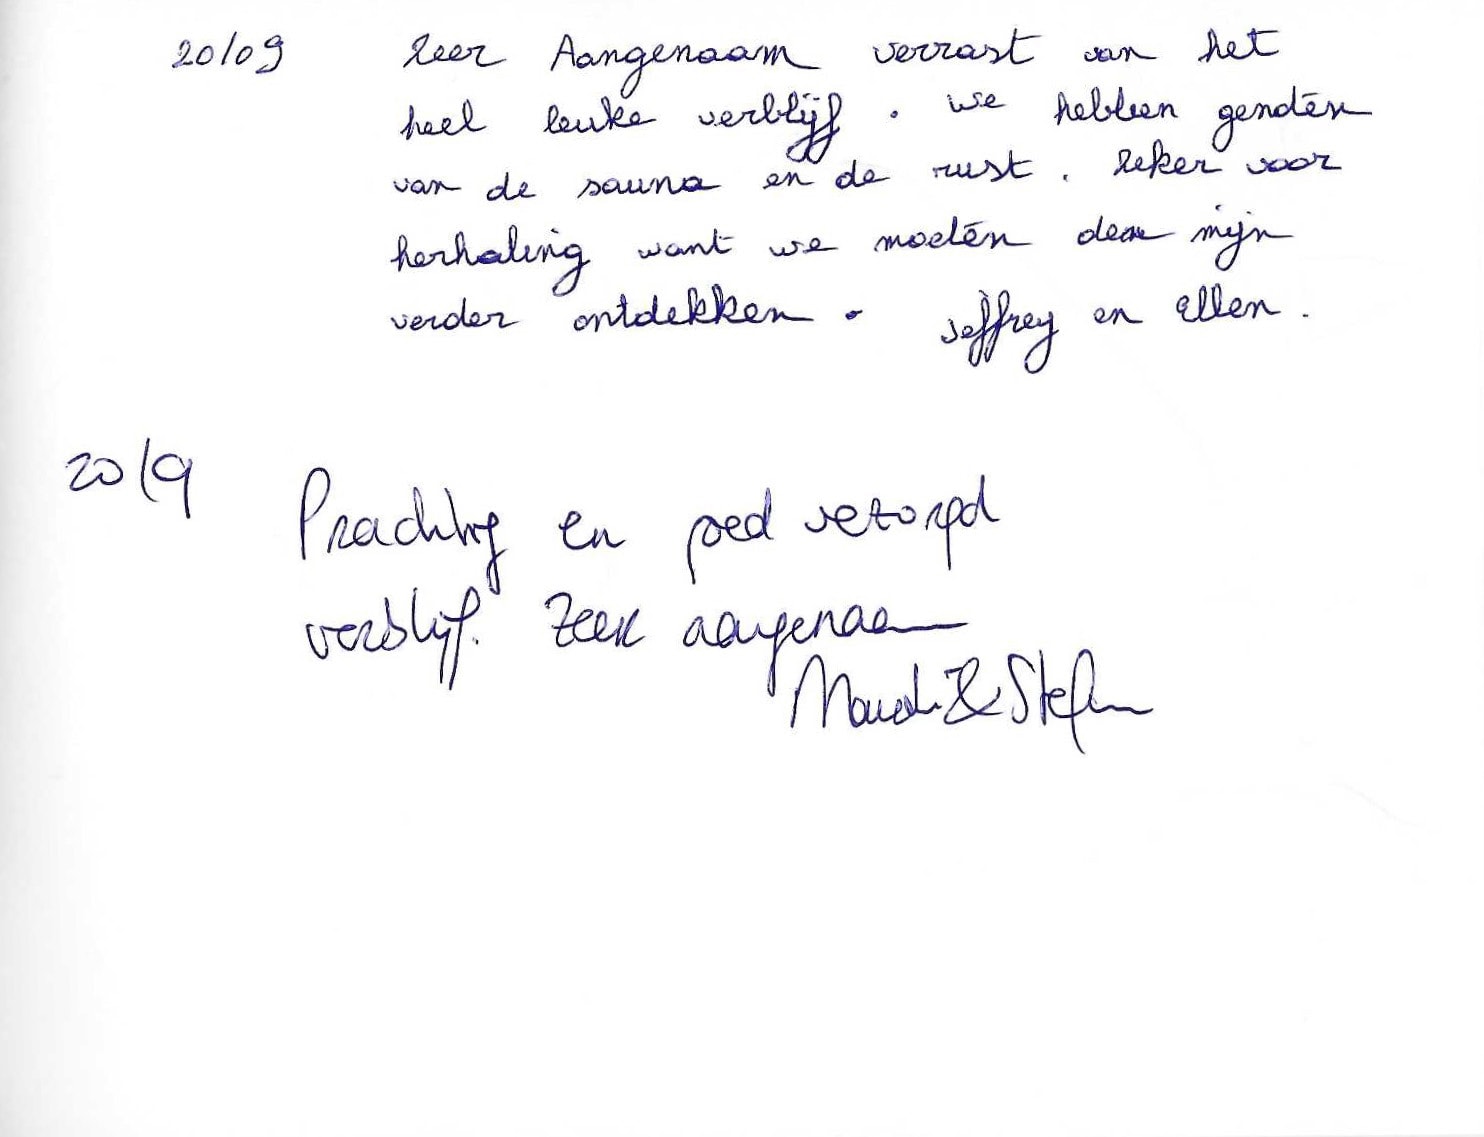 20/09 Zeer Aangenaam verrast van het
heel leuke verblijf. We hebben genoten
van de sauna en de rust. Zeker voor
herhaling want we moeten deze mijn
verder ontdekken. Jeffrey en Ellen.
20/9
Prachtig en goed verzorgd
verblijf. Zeer aangenaam
& Stefan